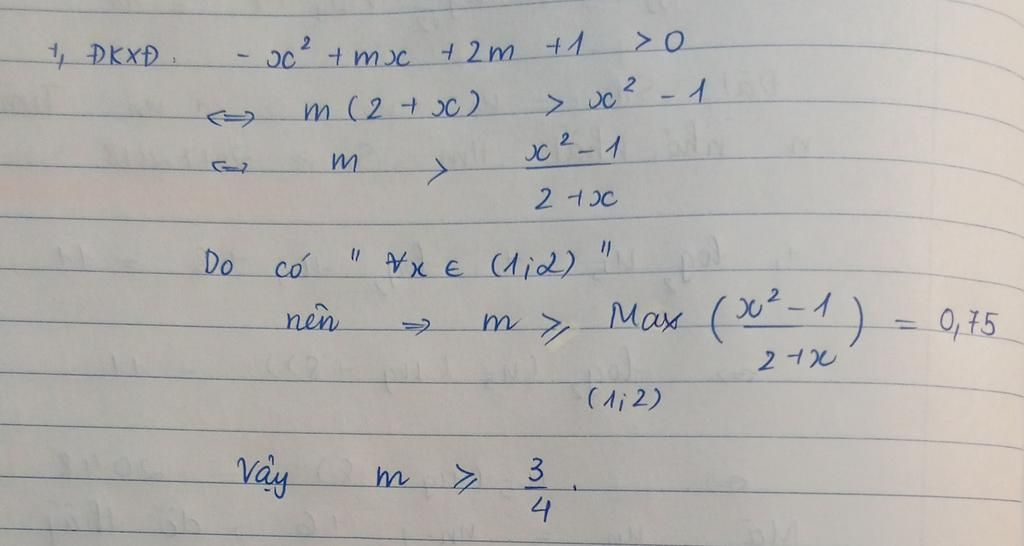 +, ĐKXĐ. - x² + mx + 2m + 1 > 0
⇔ m(2 + x) > x² - 1
⇔ m > (x² - 1)/(2 + x)
Do có " ∀x ∈ (1;2) "
nên ⇒ m ⩾ Max ((x² - 1)/(2 + x)) = 0,75
(1;2)
Vậy m ⩾ 3/4.